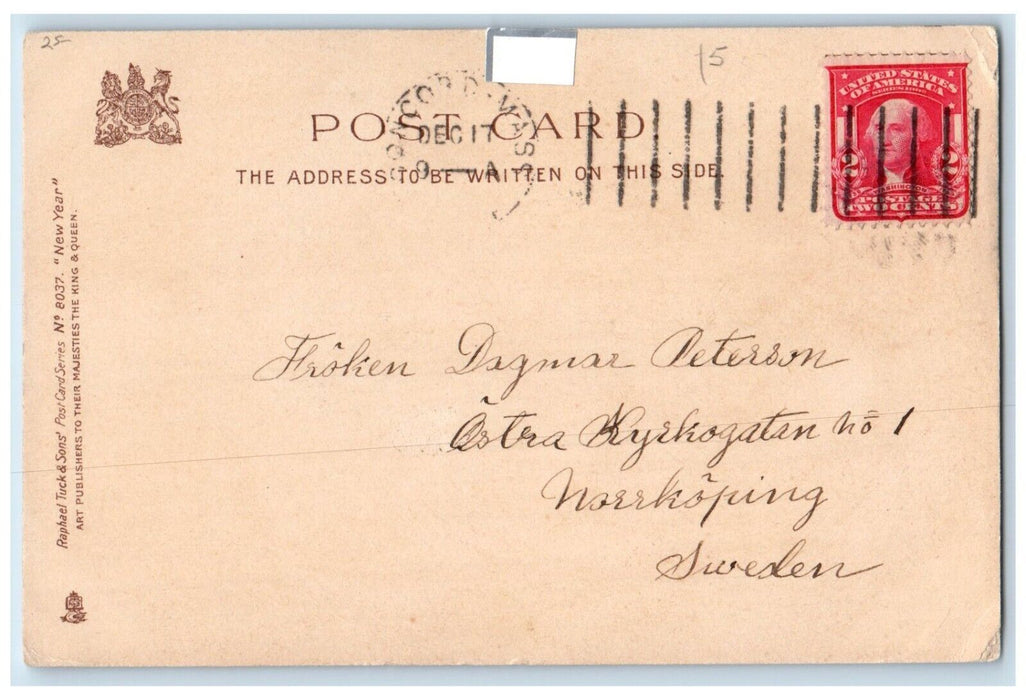 25-
15
UNITED STATES
OF AMERICA
SERIES 1902
2 2
WASHINGTON
POSTAGE
TWO CENTS
CONCORD, MASS
DEC 17
9 — A
POST CARD.
THE ADDRESS TO BE WRITTEN ON THIS SIDE.
Raphael Tuck & Sons' Post Card Series Nº 8037. "New Year"
ART PUBLISHERS TO THEIR MAJESTIES THE KING & QUEEN.
Fröken Dagmar Peterson
Östra Kyrkogatan no 1
Norrköping
Sweden